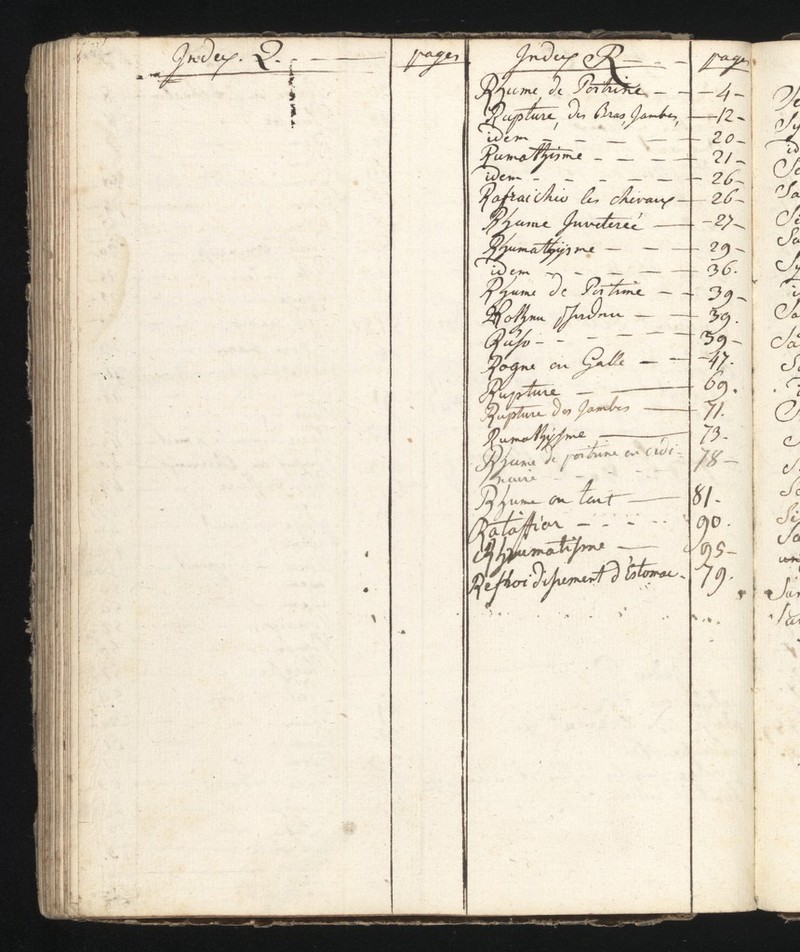 Index. Q. pages
Index R pages
Rhume de Poitrine - - 4 -
Rupture, des Bras, Jambes, - 12 -
idem - - - - 20 -
Rumathisme - - - 21 -
idem - - - - - 26 -
Rafraichir les chevaux - 26 -
Rhume Inveteréé - 27 -
Rhumathisme - - - 29 -
idem - - - - 36.
Rhume de Poitrine - - 39 -
39.
39 -
Rogne ou Galle - - 47.
Rupture - 69.
Rupture des Jambes - 71.
Rumathisme - 73.
Rhume de poitrine en ordi- 78 -
naire - - -
Rhume ou tout - 81 -
Rataffiar - - - 90.
Rhumatisme - 95 -
Refroidissement d'Estomac - 79.